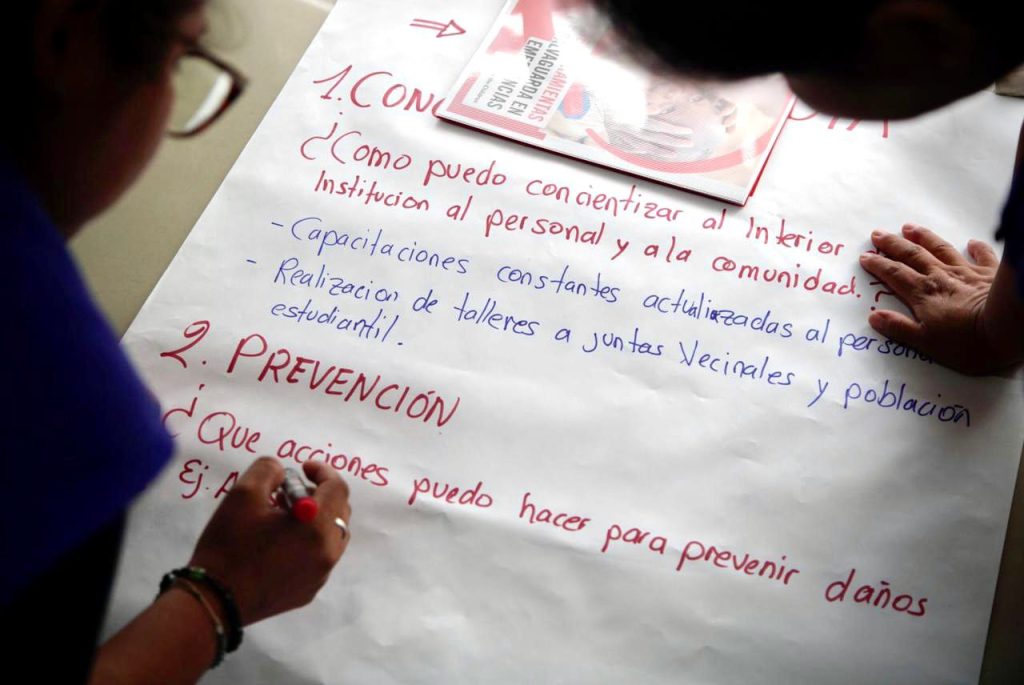 ⇒
1. CON
¿Como puedo concientizar al Interior
Institucion al personal y a la comunidad.?
- Capacitaciones constantes actualizadas al persona
- Realizacion de talleres a juntas Vecinales y población
estudiantil.
2. PREVENCIÓN
¿Que acciones puedo hacer para prevenir daños
Ej. A
AMIENTAS
LVAGUARDA EN
EME NCIAS